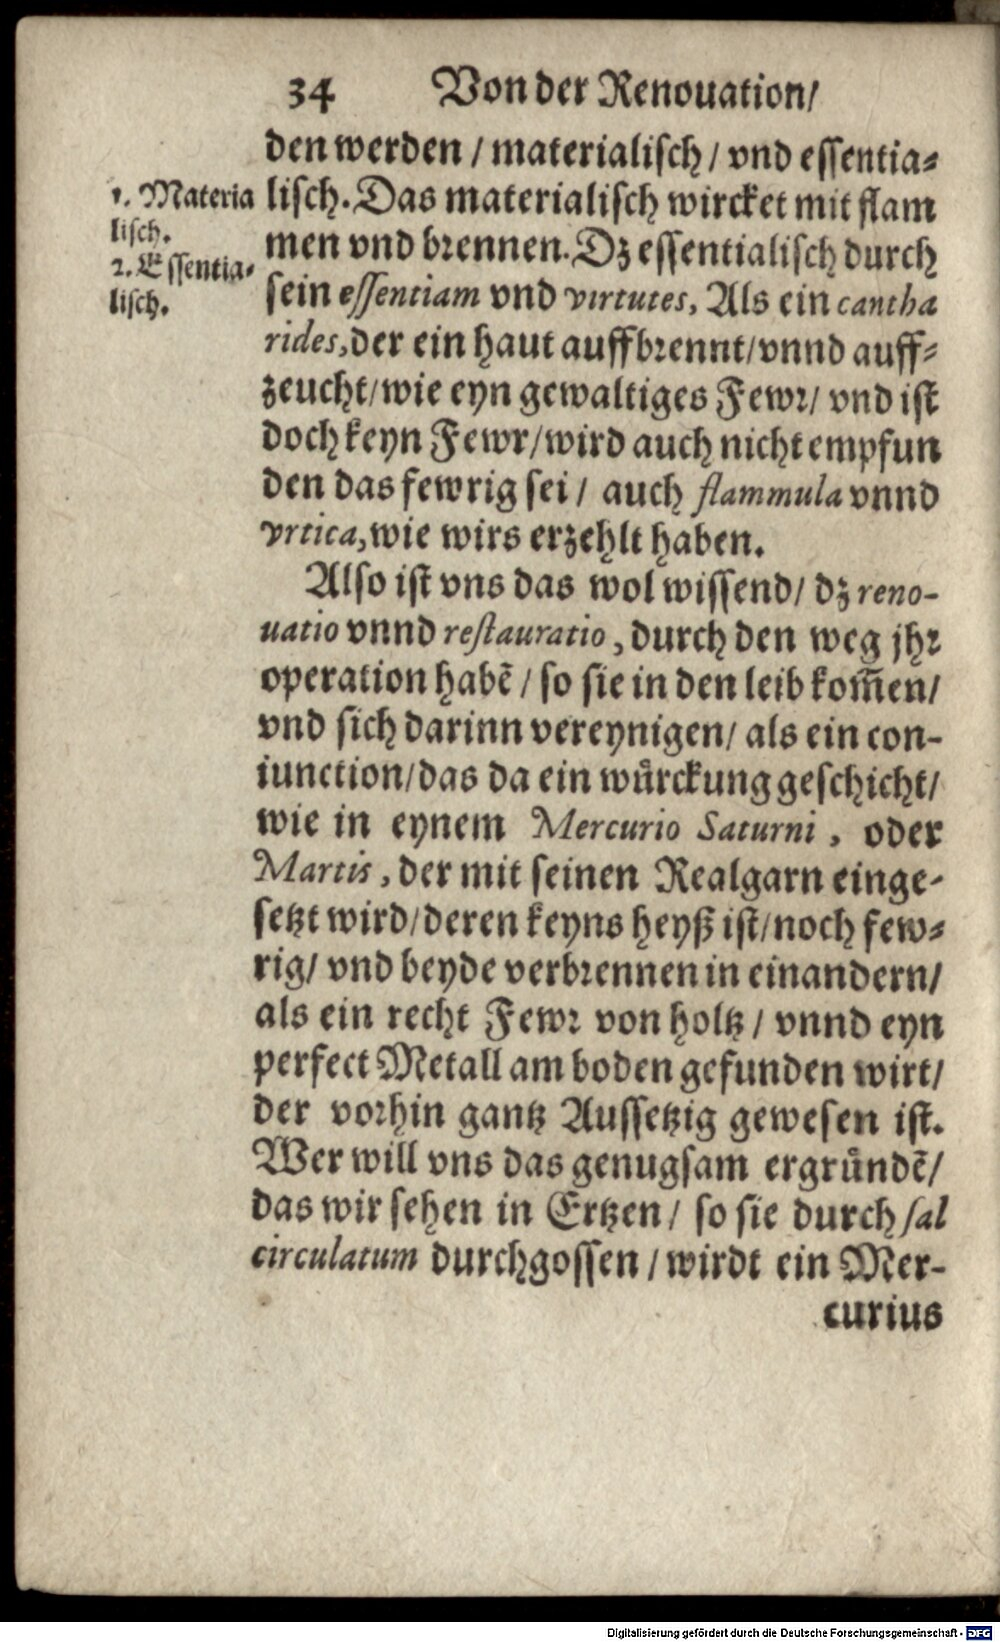 34 Von der Renouation/
den werden / materialisch / vnd essentia⸗
1. Materia
lisch.
2. Essentia⸗
lisch.
lisch. Das materialisch wircket mit flam
men vnd brennen. Dz essentialisch durch
sein essentiam vnd virtutes, Als ein cantha
rides, der ein haut auffbrennt/ vnnd auff⸗
zeucht/ wie eyn gewaltiges Fewr/ vnd ist
doch keyn Fewr/ wird auch nicht empfun
den das fewrig sei / auch flammula vnnd
vrtica, wie wirs erzehlt haben.
Also ist vns das wol wissend/ dz reno-
uatio vnnd restauratio, durch den weg jhr
operation habẽ / so sie in den leib kom̃en/
vnd sich darinn vereynigen/ als ein con-
iunction/ das da ein wůrckung geschicht/
wie in eynem Mercurio Saturni, oder
Martis, der mit seinen Realgarn einge-
setzt wird/ deren keyns heyß ist/ noch few⸗
rig/ vnd beyde verbrennen in einandern/
als ein recht Fewr von holtz / vnnd eyn
perfect Metall am boden gefunden wirt/
der vorhin gantz Aussetzig gewesen ist.
Wer will vns das genugsam ergrůndẽ/
das wir sehen in Ertzen / so sie durch sal
circulatum durchgossen / wirdt ein Mer-
curius
Digitalisierung gefördert durch die Deutsche Forschungsgemeinschaft - DFG